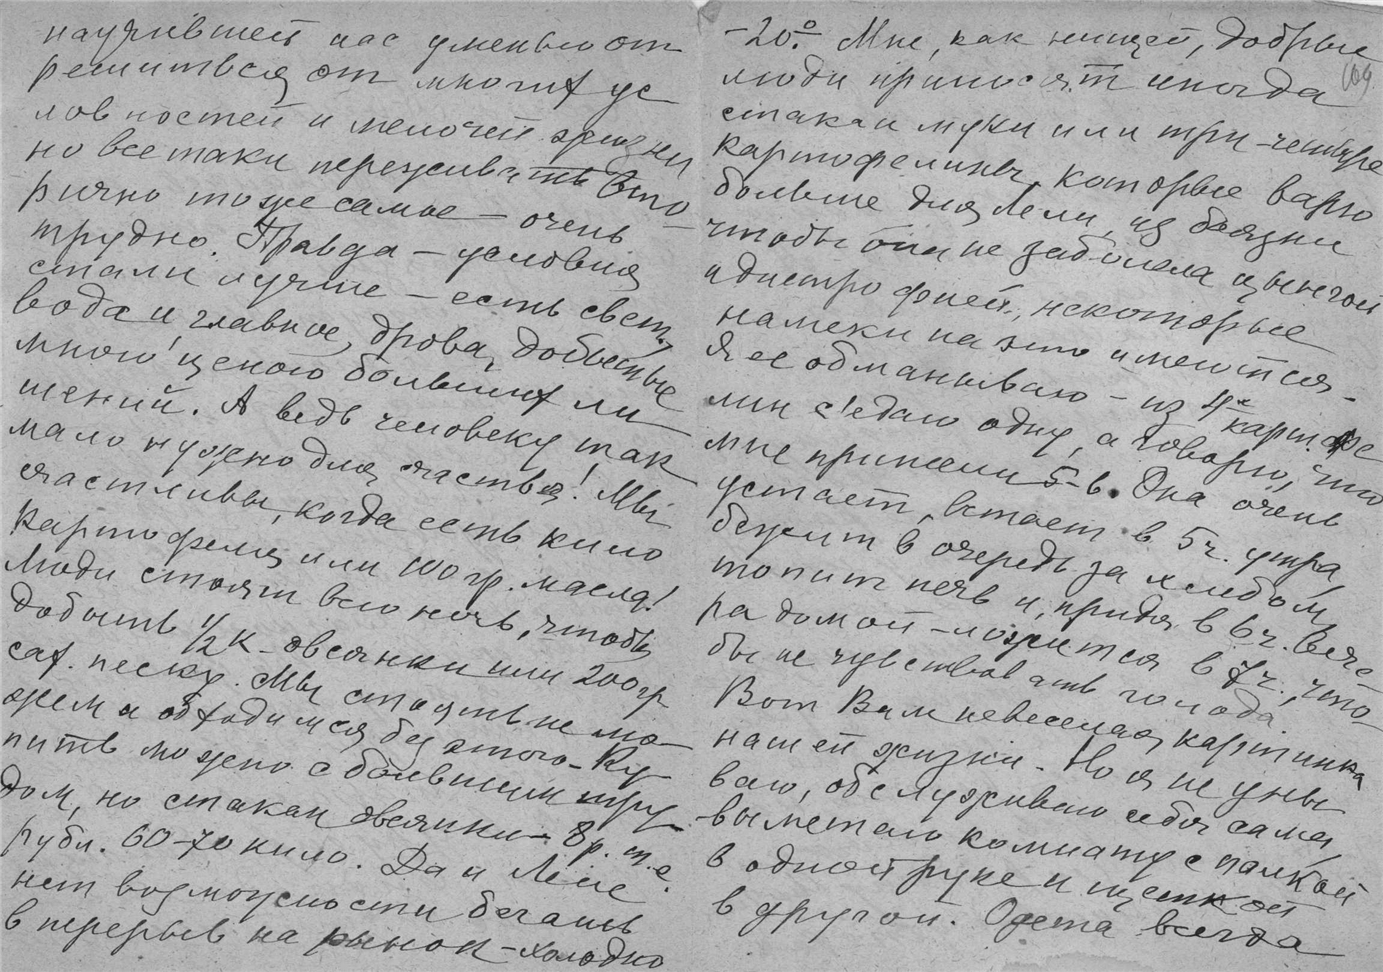 научившей нас уменью от
решиться от многих ус
ловностей и мелочей жизни
но все таки переживать вто
рично тоже самое – очень
трудно. Правда – условия
стали лучше – есть свет,
вода и главное, дрова, добытые
много ценою больших ли
шений. А ведь человеку так
мало нужно для счастья! Мы
счастливы, когда есть кило
картофеля или 100 гр. масла!
Люди стоят всю ночь, чтобы
добыть 1/2 к. овсянки или 200 гр
сах. песку. Мы стоять не мо–
жем и обходимся без этого – Ку–
пить можно с большим тру
дом, но стакан овсянки – 8 р. т.е.
рубл. 60–70 кило. Да и Леле
нет возможности бегать
в перерыв на рынок – холодно
–20°. Мне, как нищей, добрые
люди приносят иногда
109
стакан муки или три–четыре
картофелины, которые варю
больше для Лели, из боязни
чтобы она не заболела цынгой
и дистрофией, некоторые
намеки на это имеются –
Я ее обманываю – из 4х картофе
лин с'едаю одну, а говорю, что
мне принесли 5–6. Она очень
устает, встает в 5 ч. утра,
бежит в очередь за хлебом,
топит печь и, придя в 6 ч. вече
ра домой – ложится в 7 ч., что
бы не чувствовать голода
Вот Вам невеселая картинка
нашей жизни – Но я не уны
ваю, обслуживаю себя сама,
выметаю комнату с палкой
в одной руке и щеткой
в другой. Одета всегда